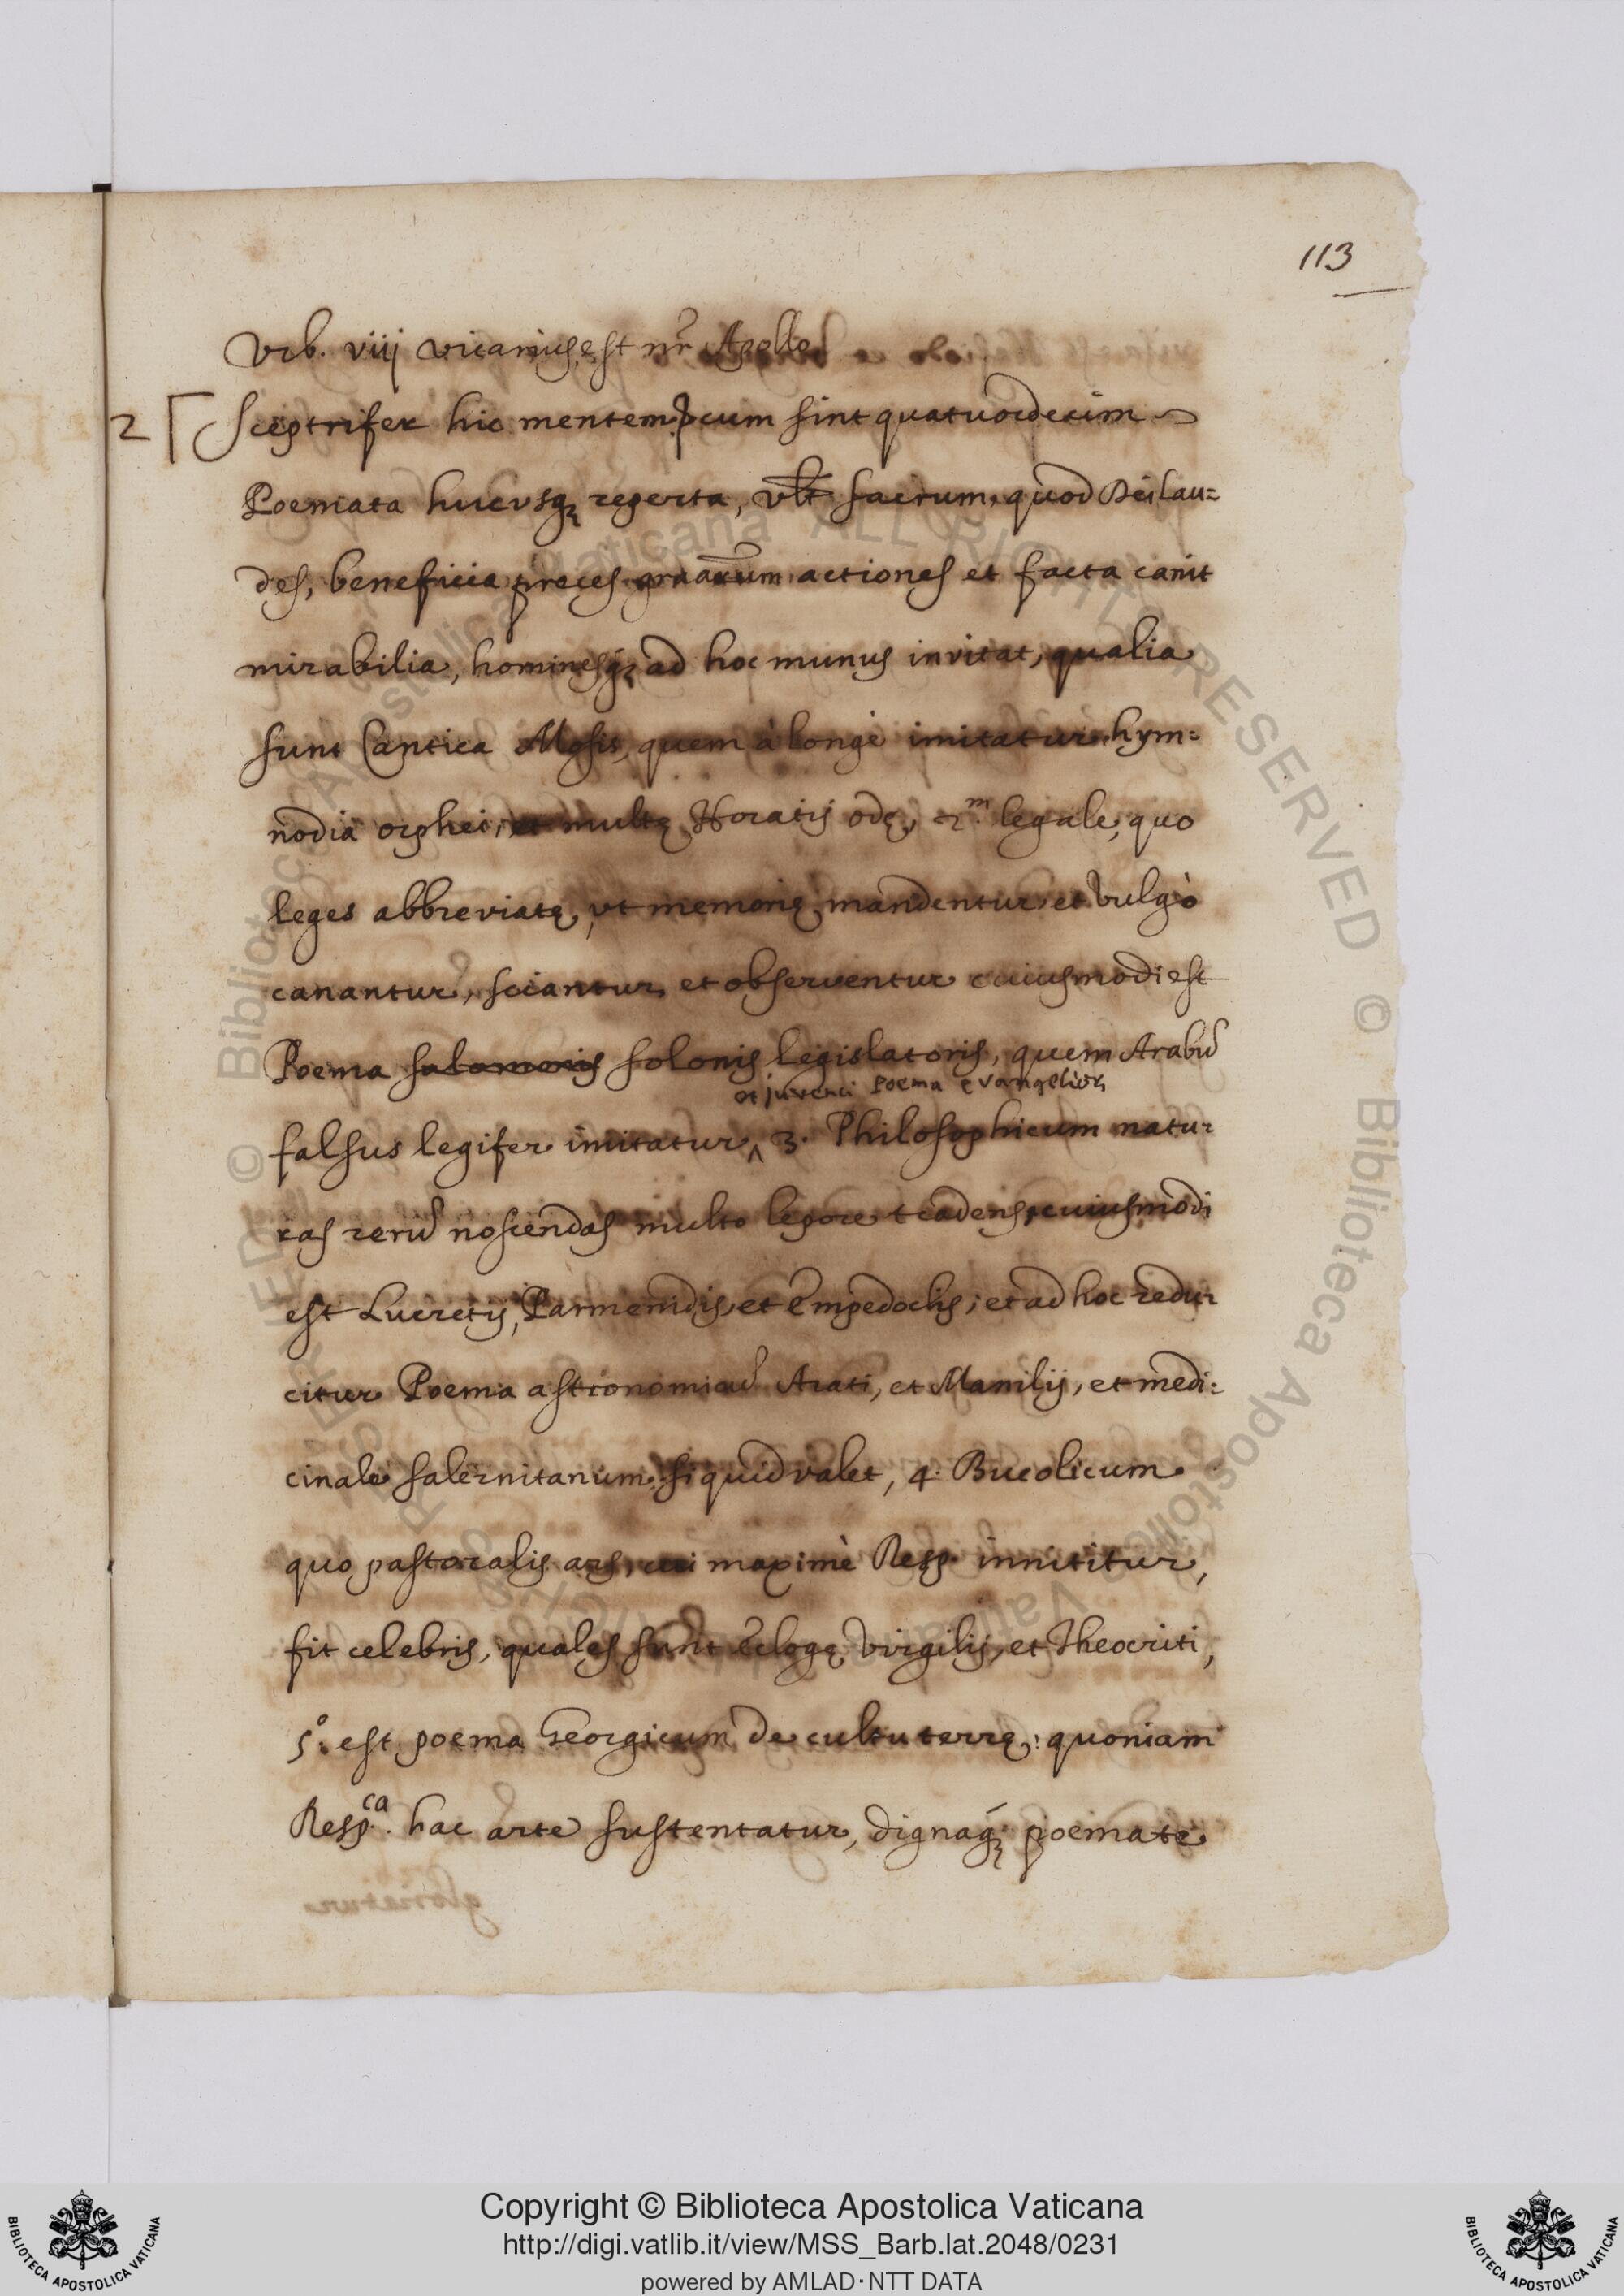 113
Vrb. viij vicarius est nr̃ Apollo
2 Sceptrifer hic mentem? cum sint quatuordecim
Poemata hucvsq; reperta, vlt sacrum, quod Dei lau=
des, beneficia preces gr̃arum actiones et facta canit
mirabilia, hominesq; ad hoc munus invitat, qualia
sunt Cantica Mosis, quem à longè imitatur hym=
nodia orphei, et multę Horatij odę, 2.m legale, quo
leges abbreviatę, vt memorię mandentur et vulgò
canantur, sciantur, et observentur cuiusmodi est
Poema salomonis solonis legislatoris, quem Arabũ
et juvenci Poema evangelior
falsus legifer imitatur ^ 3. Philosophicum natu=
ras rerũ noscendas multo lepore tradens, cuiusmodi
est Lucretij, Parmenidis, et Empedoclis; et ad hoc redu=
citur Poema astronomicũ Arati, et Manilij, et medi=
cinale salernitanum si quid valet, 4. Bucolicum
quo pastoralis ars, cui maximè Resp. innititur,
fit celebris, quales sunt eclogę Virgilij, et Theocriti,
5.º est poema Georgicum de cultu terrę: quoniam
Resp.ca hac arte sustentatur, dignaq; poemate
Copyright © Biblioteca Apostolica Vaticana
http://digi.vatlib.it/view/MSS_Barb.lat.2048/0231
powered by AMLAD·NTT DATA
BIBLIOTECA APOSTOLICA VATICANA
BIBLIOTECA APOSTOLICA VATICANA